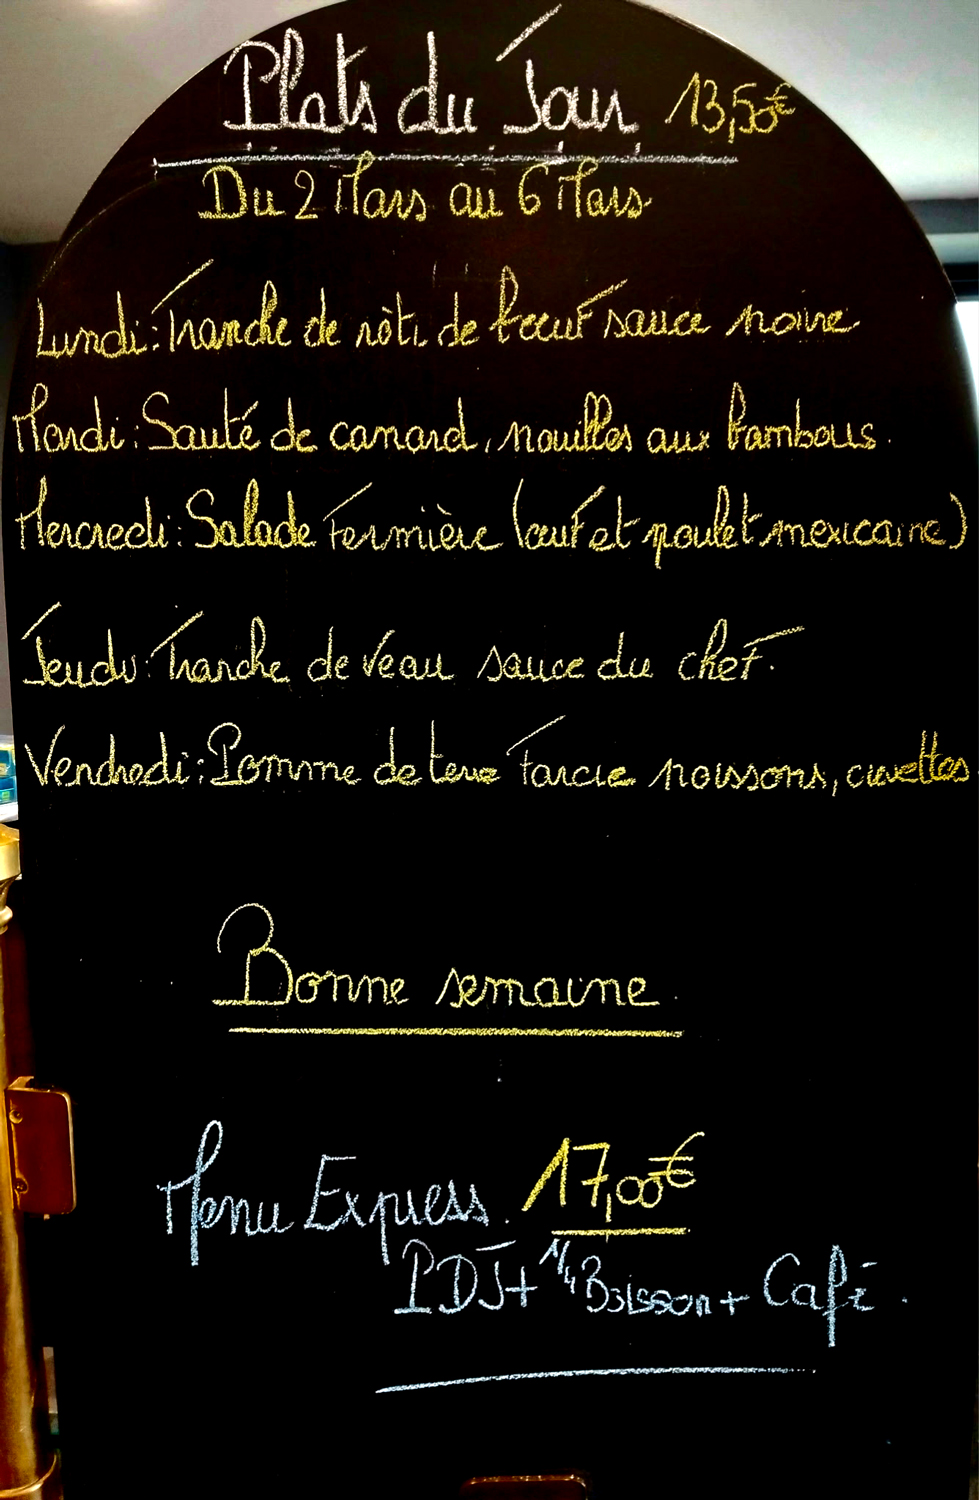 Plats du Jour 13,50€
Du 2 Mars au 6 Mars
Lundi : Tranche de rôti de bœuf sauce noire
Mardi : Sauté de canard, nouilles aux bambous.
Mercredi : Salade Fermière (œuf et poulet mexicaine)
Jeudi : Tranche de veau sauce du chef.
Vendredi : Pomme de terre farcie poissons, crevettes
Bonne semaine.
Menu Express. 17,00€
PDJ + 1/4 Boisson + Café.